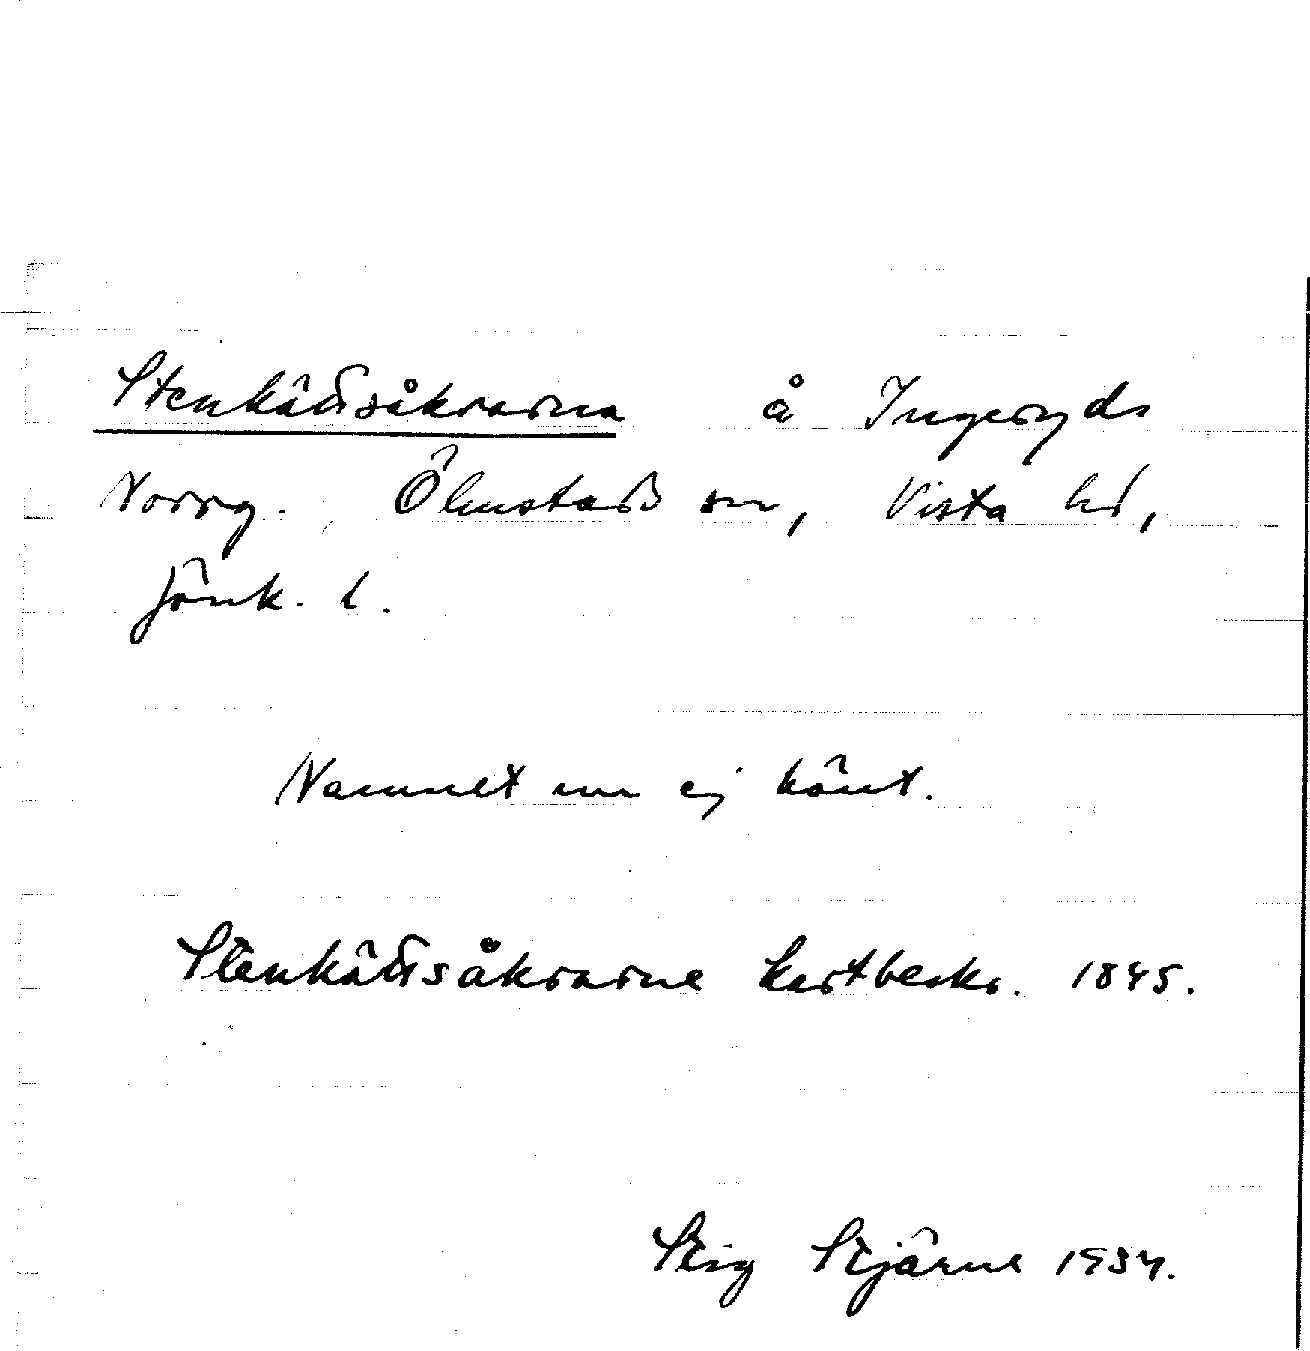 Stenkättsåkrarna å Ingeryds
Norrg. Ölmstads sn, Vista hd,
Jönk. l.
Namnet nu ej känt.
Stenkättsåkrarne kartbeskr. 1845.
Stig Stjärne 1934.